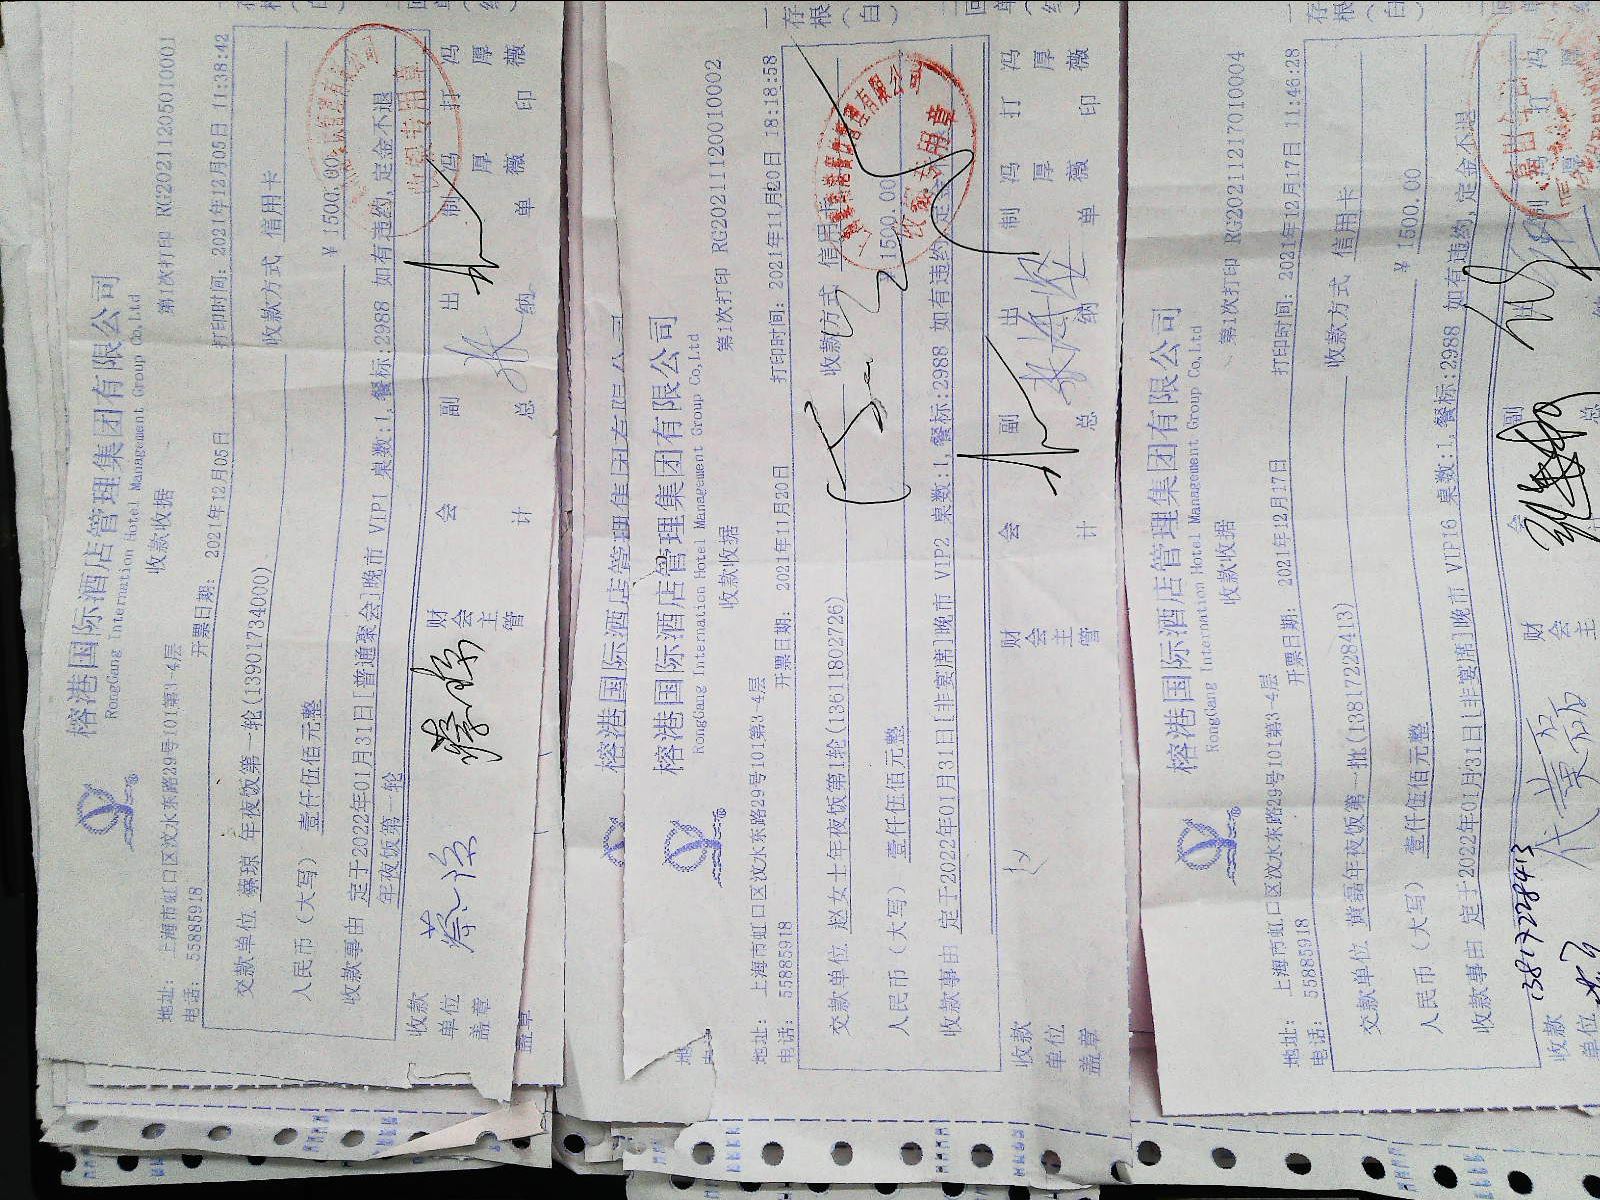 榕港国际酒店管理集团有限公司
RongGang Internation Hotel Management Group Co,Ltd
收款收据
第1次打印 RG20211205010001
地址: 上海市虹口区汶水东路29号101第3-4层
电话: 55885918
开票日期: 2021年12月05日
打印时间: 2021年12月05日 11:38:42
交款单位 蔡琼 年夜饭第一轮(13901734000)
收款方式 信用卡
人民币（大写） 壹仟伍佰元整
¥ 1500.00
收款事由 定于2022年01月31日[普通聚会]晚市 VIP1 桌数:1,餐标:2988 如有违约,定金不退
年夜饭第一轮
收款单位盖章
财会主管
会计
副总
出纳
制单 冯厚薇
打印 冯厚薇
盖章
榕港国际酒店管理集团有限公司
榕港国际酒店管理集团有限公司
RongGang Internation Hotel Management Group Co,Ltd
收款收据
第1次打印 RG20211120010002
地址: 上海市虹口区汶水东路29号101第3-4层
电话: 55885918
开票日期: 2021年11月20日
打印时间: 2021年11月20日 18:18:58
一存根(白)
交款单位 赵女士年夜饭第1轮(13611802726)
收款方式 信用卡
人民币（大写） 壹仟伍佰元整
1500.00
收款事由 定于2022年01月31日[非宴席]晚市 VIP2 桌数:1,餐标:2988 如有违约,定金
收款单位盖章
财会主管
会计
副总
出纳
制单 冯厚薇
打印 冯厚薇
榕港国际酒店管理集团有限公司
RongGang Internation Hotel Management Group Co,Ltd
收款收据
第1次打印 RG20211217010004
地址: 上海市虹口区汶水东路29号101第3-4层
电话: 55885918
开票日期: 2021年12月17日
打印时间: 2021年12月17日 11:46:28
一存根(白)
交款单位 黄嘉年夜饭第一批(13817228413)
收款方式 信用卡
人民币（大写） 壹仟伍佰元整
¥ 1500.00
收款事由 定于2022年01月31日[非宴席]晚市 VIP16 桌数:1,餐标:2988 如有违约,定金不退
13817228413
收款
单位
财会主
副总
制
打
冯厚